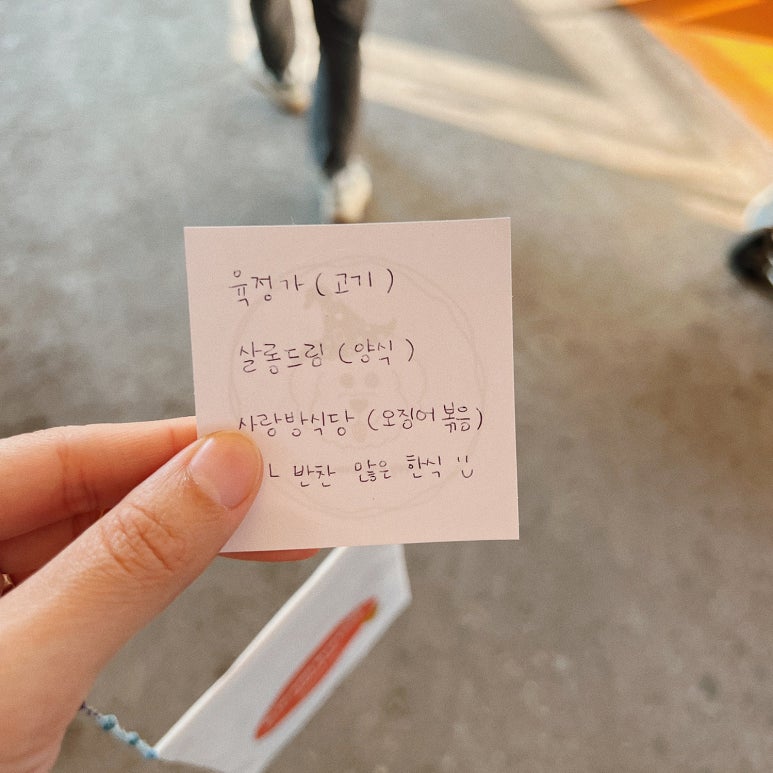 육정가 (고기)
살롱드림 (양식)
사랑방식당 (오징어볶음)
ㄴ 반찬 많은 한식 :)